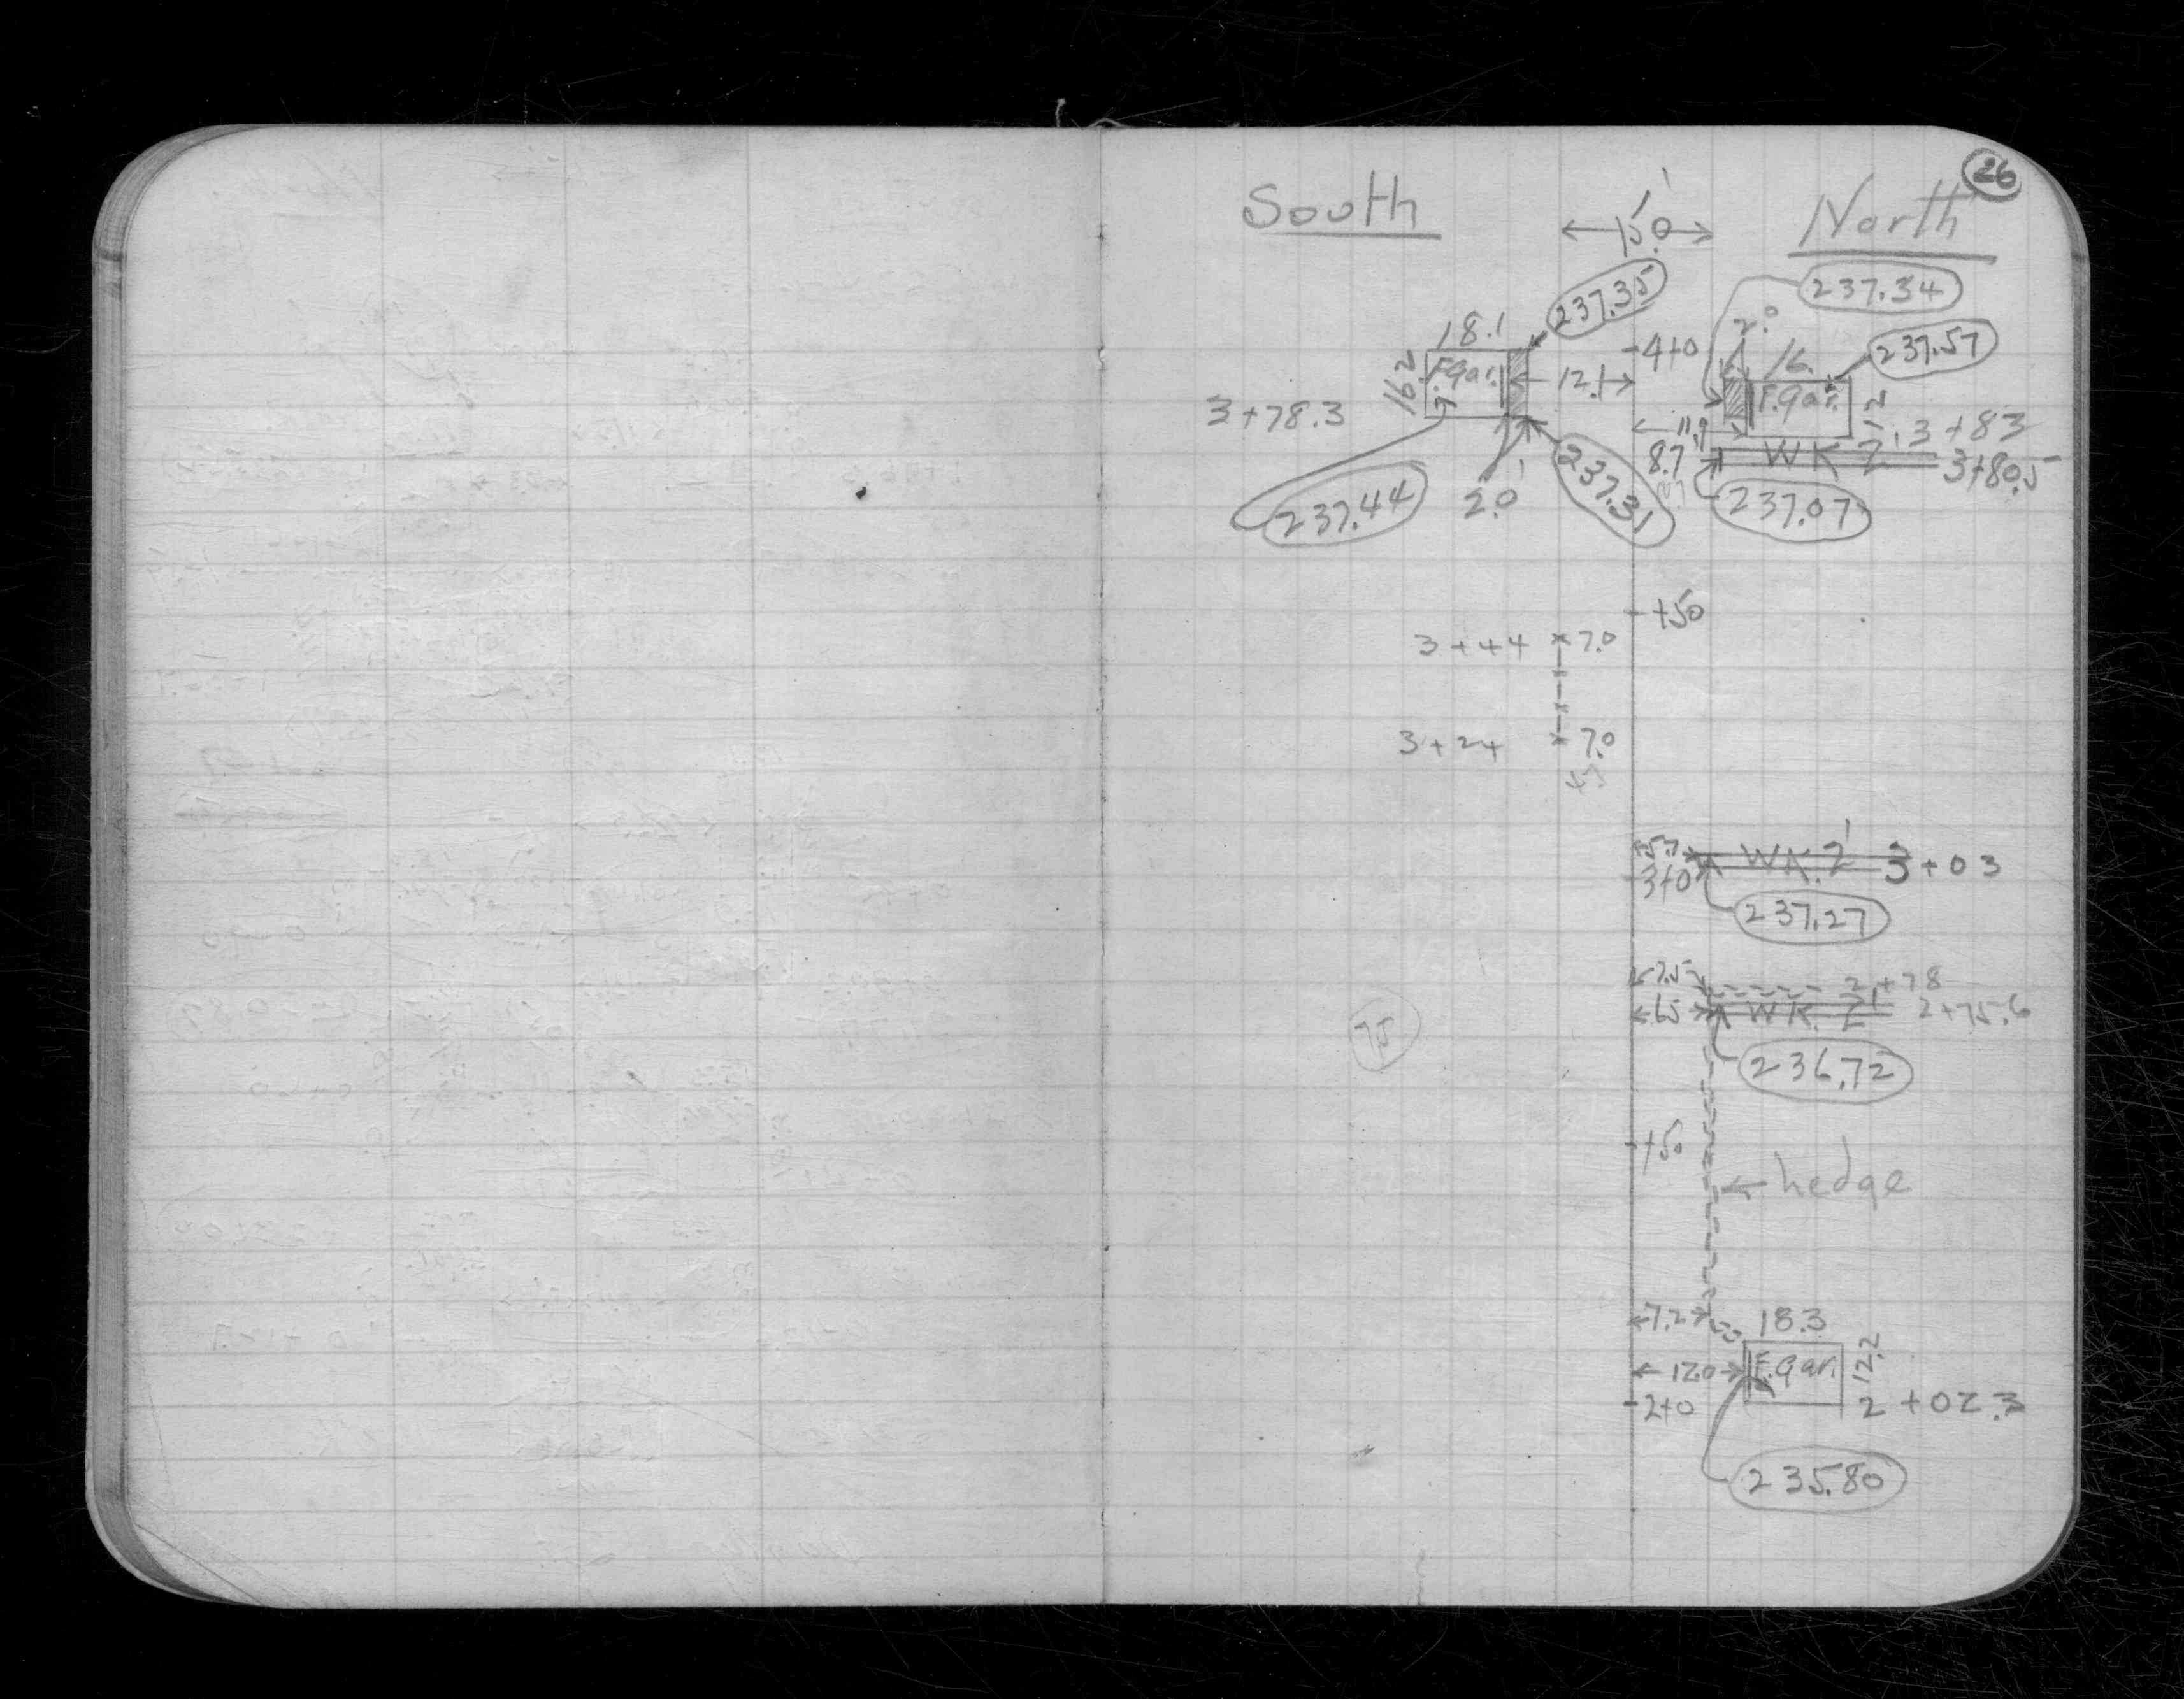 26
South 15.0' North
237.35 237.34
18.1 2.0 237.57
-4+0 16.
16.2 F.Gar. 12.1 F.gar. 12
3+78.3 11.9 3+83
8.7 WK 2' 3+80.5
237.44 2.0' 237.31 237.07
-+50
3+44 7.0
3+24 7.0
5.7 WK. 2' 3+03
-3+0
237.27
7.5 2+78
6.5 WK. 2' 2+75.6
75
236.72
-+50
hedge
7.2 18.3
12.0 F.gar. 12.2
-2+0 2+02.3
235.80